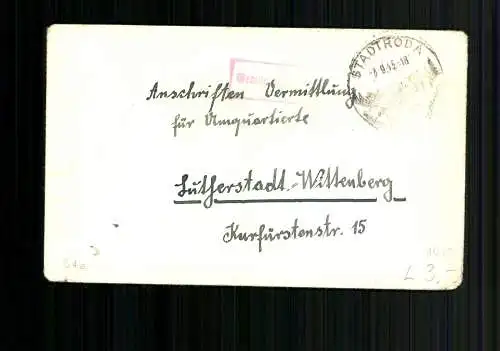 STADTRODA
Anschriften Vermittlung
für Umquartierte
Lutherstadt-Wittenberg
Kurfürstenstr. 15
L 3,-